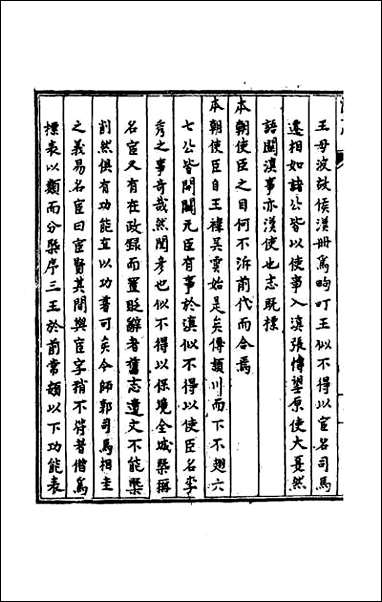 王毋波故侯漢冊為町王似不得以宦名司馬
遷相如諸公皆以使事入滇張博望原使大夏然
語關滇事亦漢使也志既標
本朝使臣之目何不訴前代而合焉
本朝使臣自王禕吳雲始是矣傅潁川而下不翅六
七公皆開闢元臣有事於滇似不得以使臣名李
秀之事奇哉然聞考也似不得以保境全城槩稱
名宦又有在政錄而置貶辭者舊志遺文不能槩
削然俱有功能立以功著可矣今師郭司馬相圭
之義易名宦曰宦賢其間與宦字稍不符者借為
標表以類而分槩序三王於前常頞以下功能表